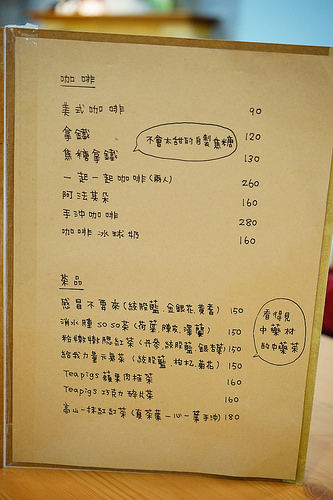 咖啡
美式咖啡 90
拿鐵 120
焦糖拿鐵 130
不會太甜的自製焦糖
一起一起咖啡(兩人) 260
阿法其朵 160
手沖咖啡 280
咖啡冰球奶 160
茶品
感冒不要來(絞股藍.金銀花.黃耆) 150
消水腫SOSO茶(荷葉.陳皮.澤蘭) 150
粉嫩嫩膠紅茶(丹參.絞股藍.銀杏葉) 150
給我力量元氣茶(絞股藍.枸杞.菊花) 150
看得見
中藥材
的中藥茶
Teapigs 蘋果肉桂茶 160
Teapigs 巧克力碎片茶 160
高山一抹紅紅茶(夏茶葉一心一葉手沖) 180